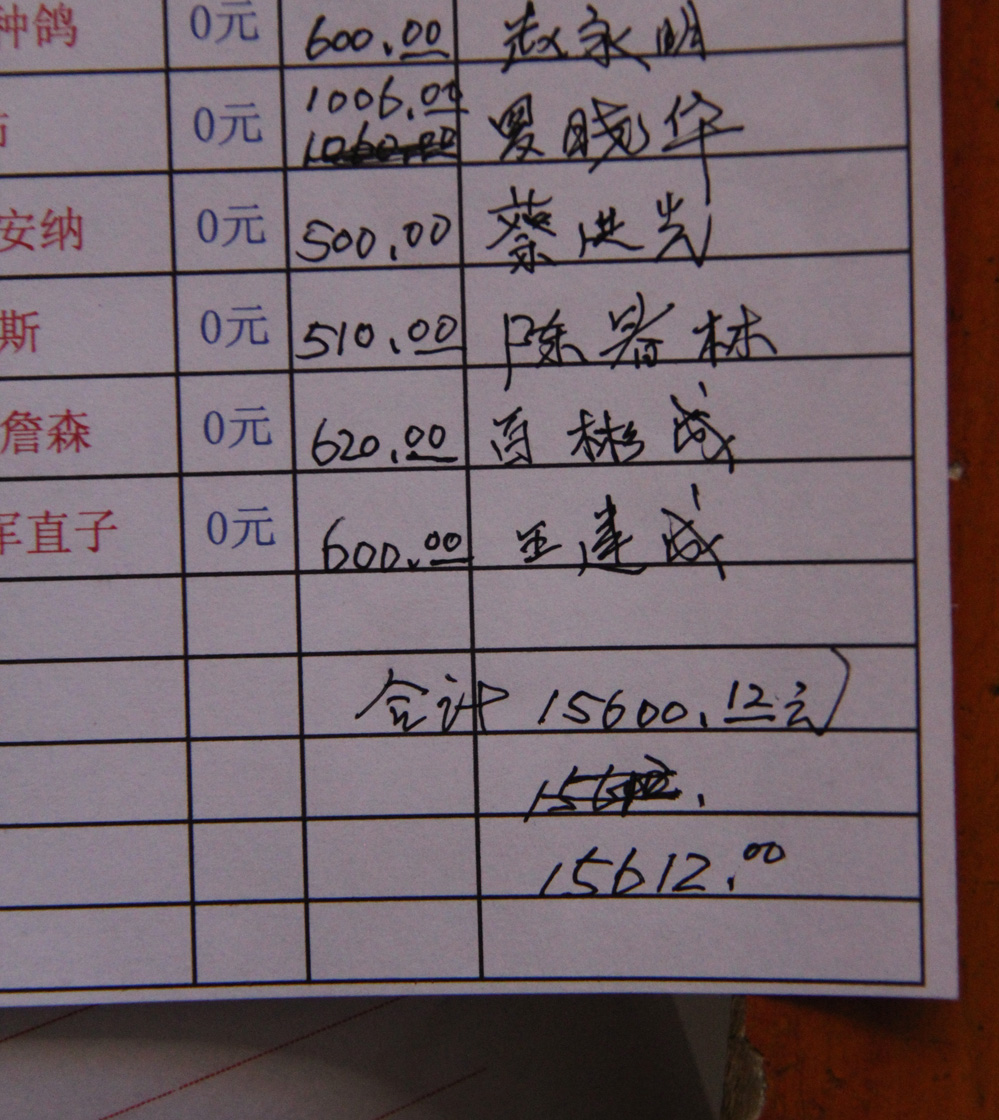 种鸽 0元 600.00 赵永明
0元 1006.00 罗晓华
安纳 0元 500.00 蔡洪光
斯 0元 510.00 陈春林
詹森 0元 620.00 百彬成
军直子 0元 600.00 王建成
合计 15600.12元
15612.00